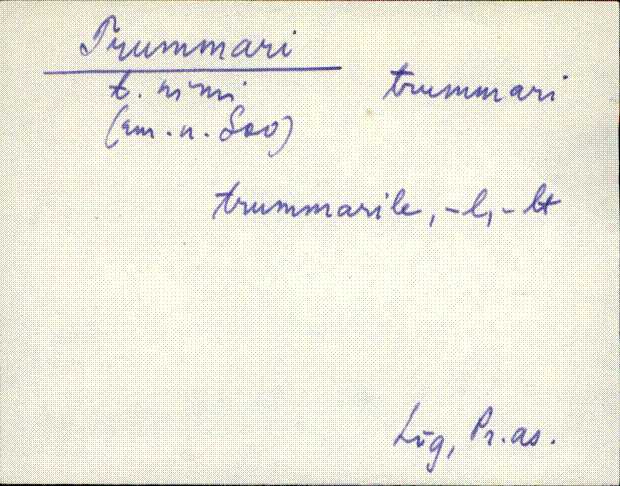 Trummari
t. nimi trummari
(em. n. Soo)
trummarile, -l, -lt
Lüg, Pr. as.